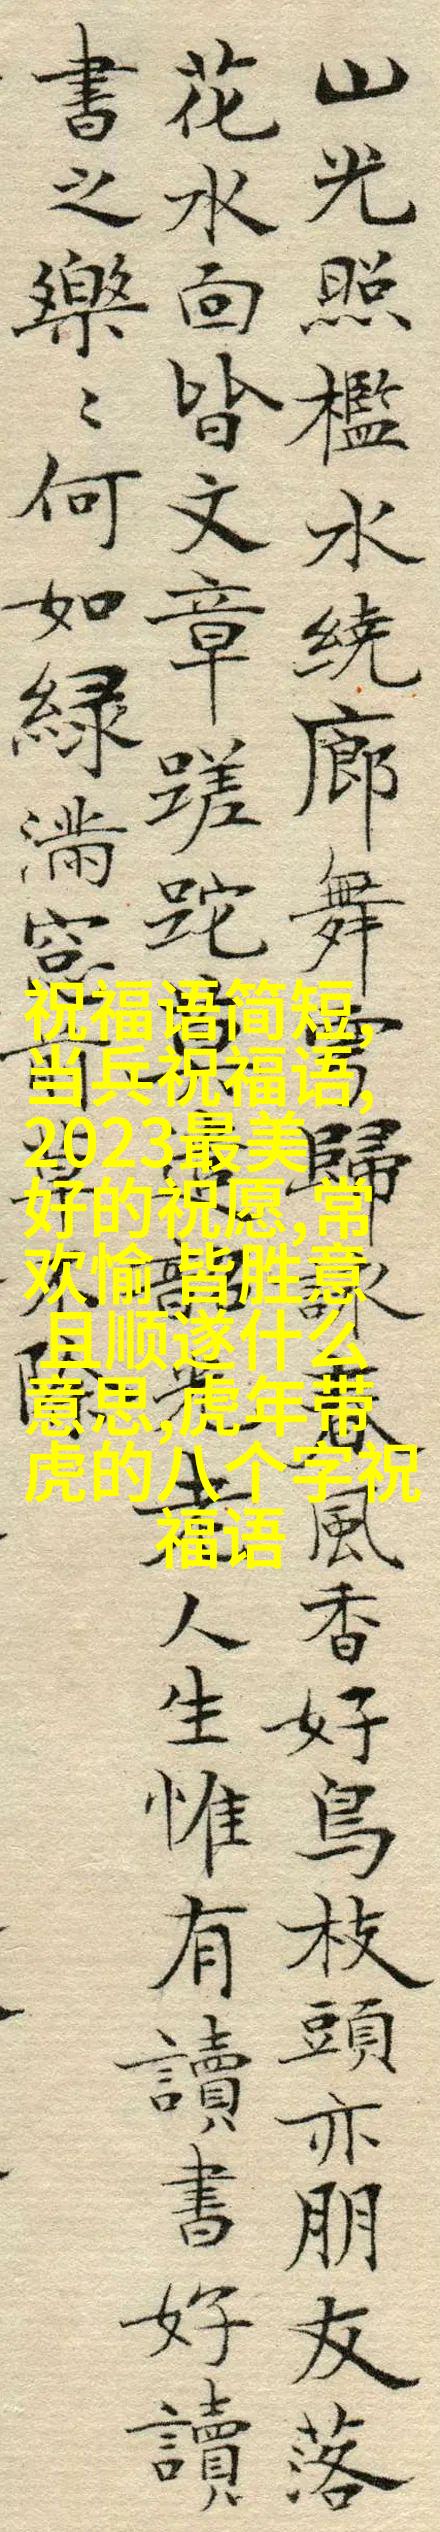 山光照檻水绕廊舞雩歸詠春風香好鳥枝頭亦朋友落
花水面皆文章蹉跎莫遣韶光老人生惟有讀書好讀
書之樂〻何如綠滿窓前草不除
祝福语简短,
当兵祝福语,
2023最美
好的祝愿,常
欢愉 皆胜意
且顺遂什么
意思,虎年带
虎的八个字祝
福语